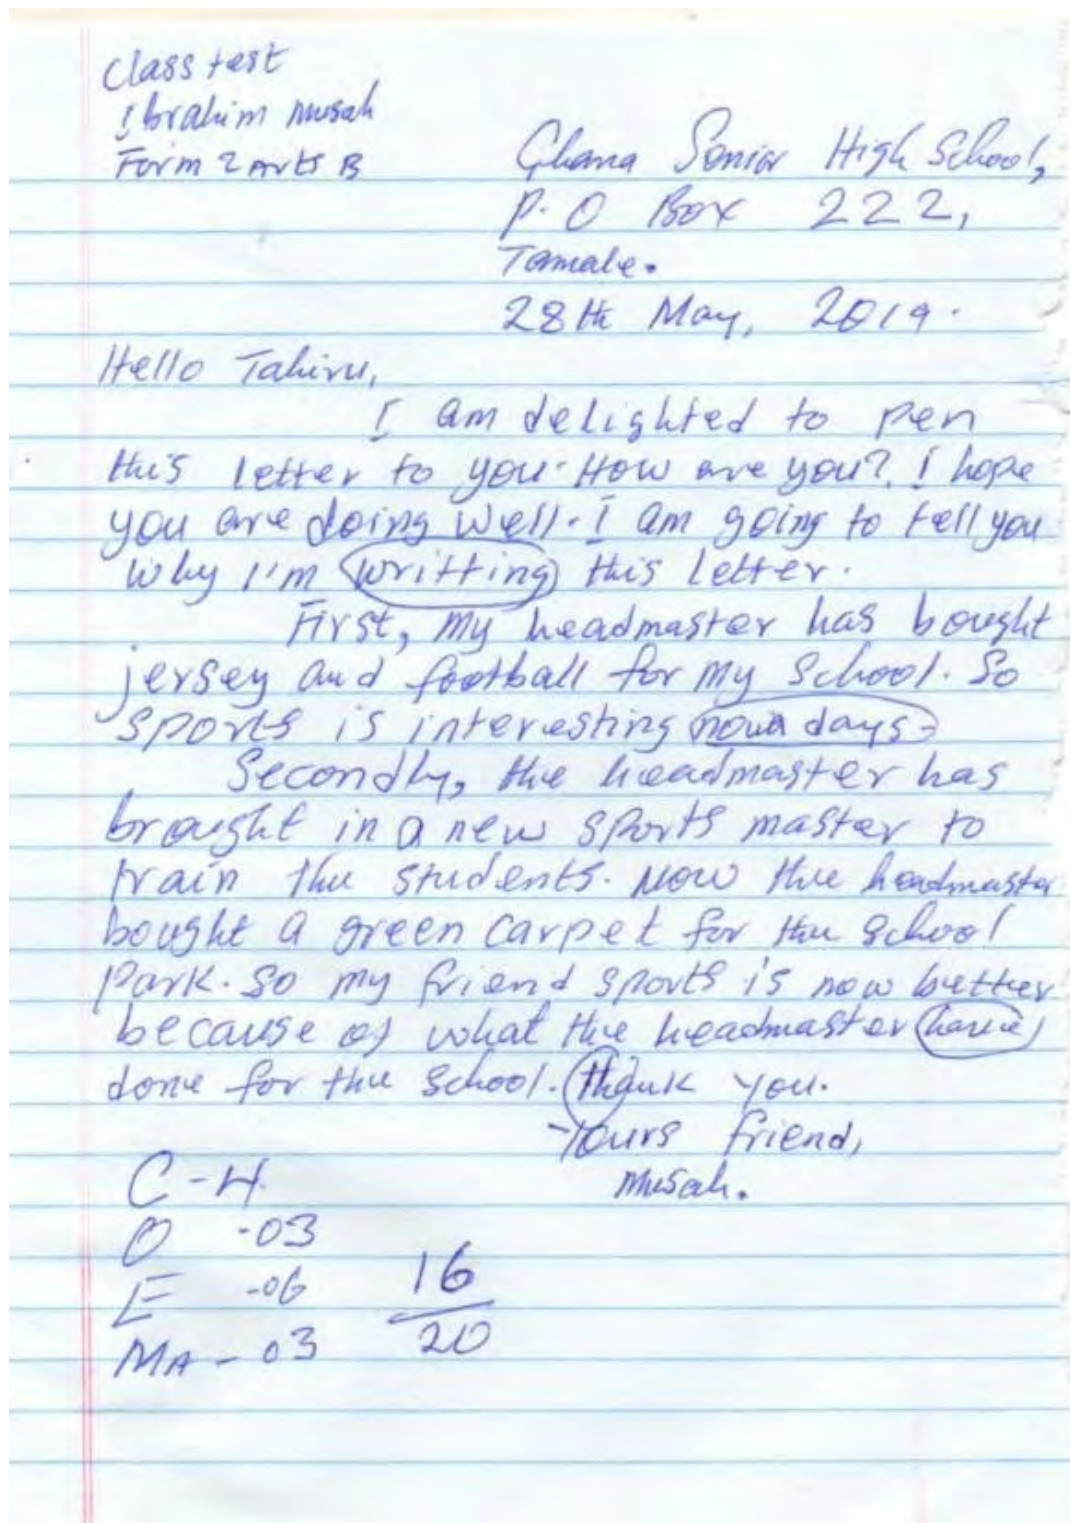 Class test
Ibrahim Musah
Form 2 Arts B
Ghana Senior High School,
P. O Box 222,
Tamale.
28th May, 2019.
Hello Tahiru,
I am delighted to pen
this letter to you. How are you? I hope
you are doing well. I am going to tell you
why I'm writting this letter.
First, my headmaster has bought
jersey and football for my school. So
sports is interesting nowa days.
Secondly, the headmaster has
brought in a new sports master to
train the students. Now the headmaster
bought a green carpet for the school
park. So my friend sports is now better
because of what the headmaster have
done for the school. thank you.
Yours friend,
Musah.
C - 4
O - 03
E - 06
MA - 03
16
20